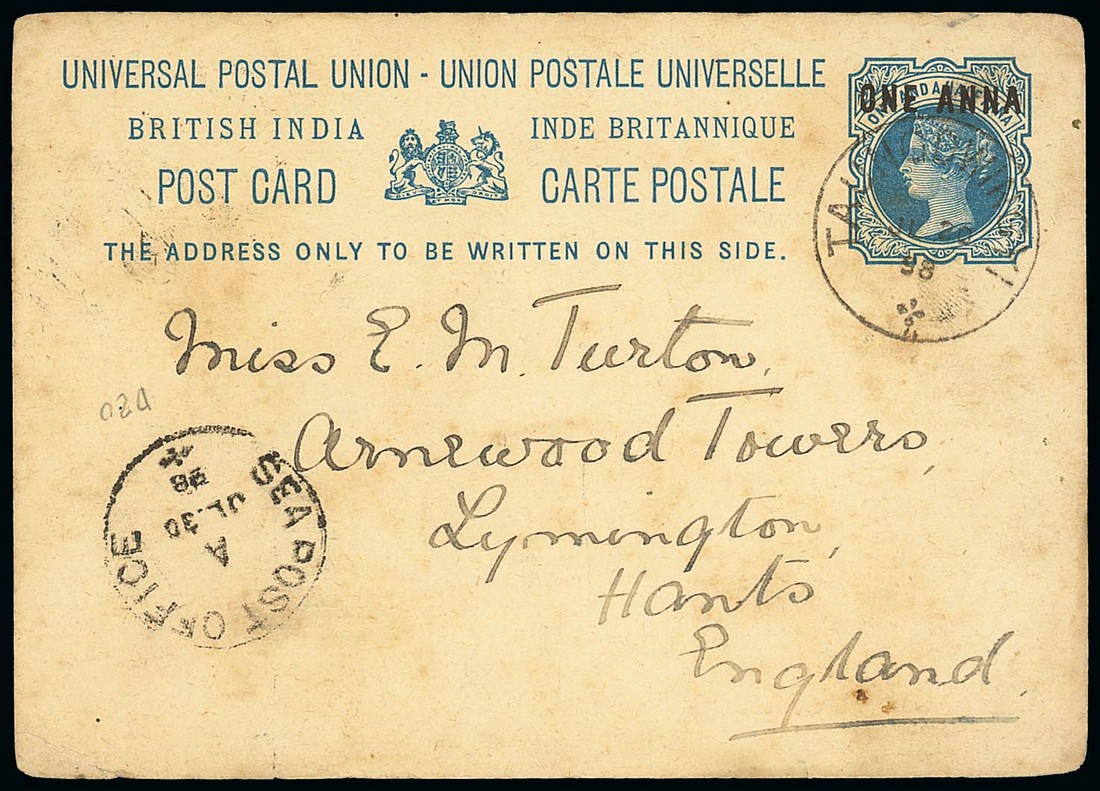 UNIVERSAL POSTAL UNION - UNION POSTALE UNIVERSELLE
BRITISH INDIA INDE BRITANNIQUE
POST CARD CARTE POSTALE
THE ADDRESS ONLY TO BE WRITTEN ON THIS SIDE.
ONE ANNA
98
Miss E. M. Turton,
Arnewood Towers,
Lymington,
Hants
England.
SEA POST OFFICE
A
JL.30
98